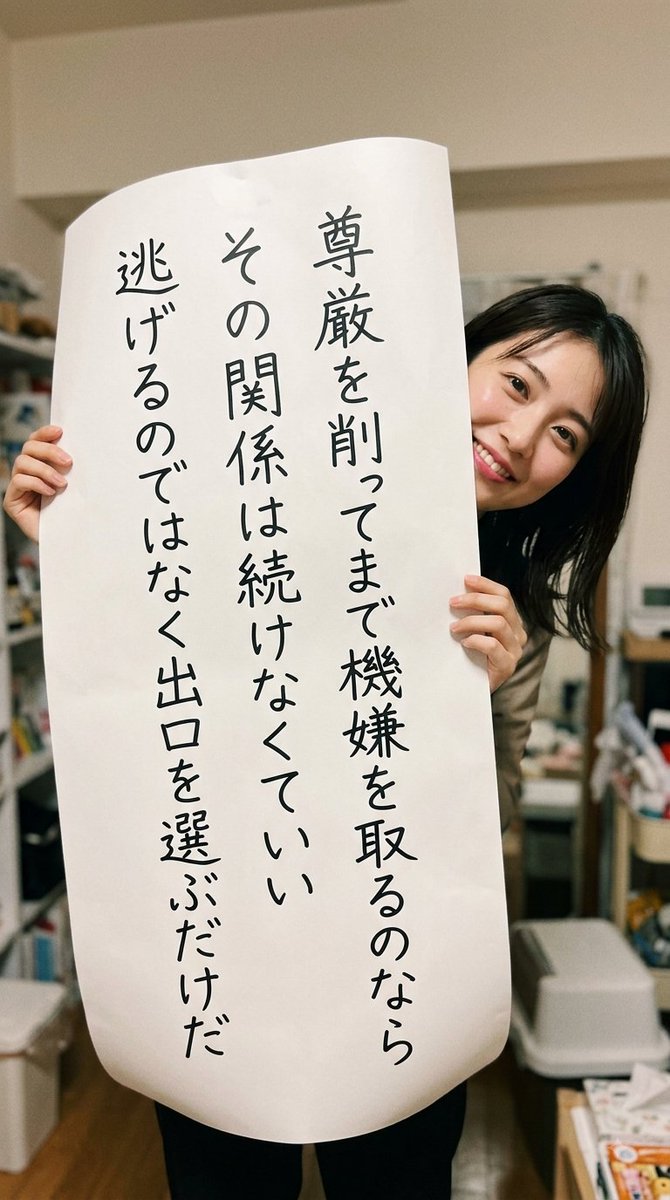 尊厳を削ってまで機嫌を取るのなら
その関係は続けなくていい
逃げるのではなく出口を選ぶだけだ